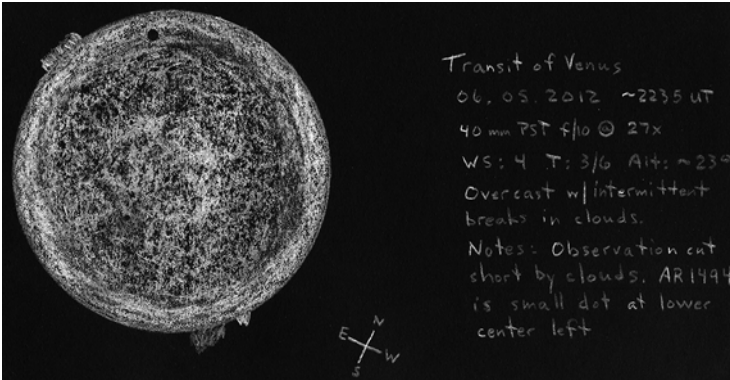 Transit of Venus
06. 05. 2012 ~2235 UT
40 mm PST f/10 @ 27x
WS: 4 T: 3/6 Alt: ~23°
Overcast w/intermittent
breaks in clouds.
Notes: Observation cut
short by clouds. AR1494
is small dot at lower
center left
N
E
W
S